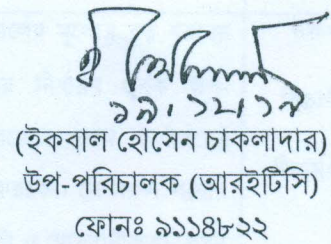 ১৯.১২.১৭
(ইকবাল হোসেন চাকলাদার)
উপ-পরিচালক (আরইটিসি)
ফোনঃ ৯১১৪৮২২